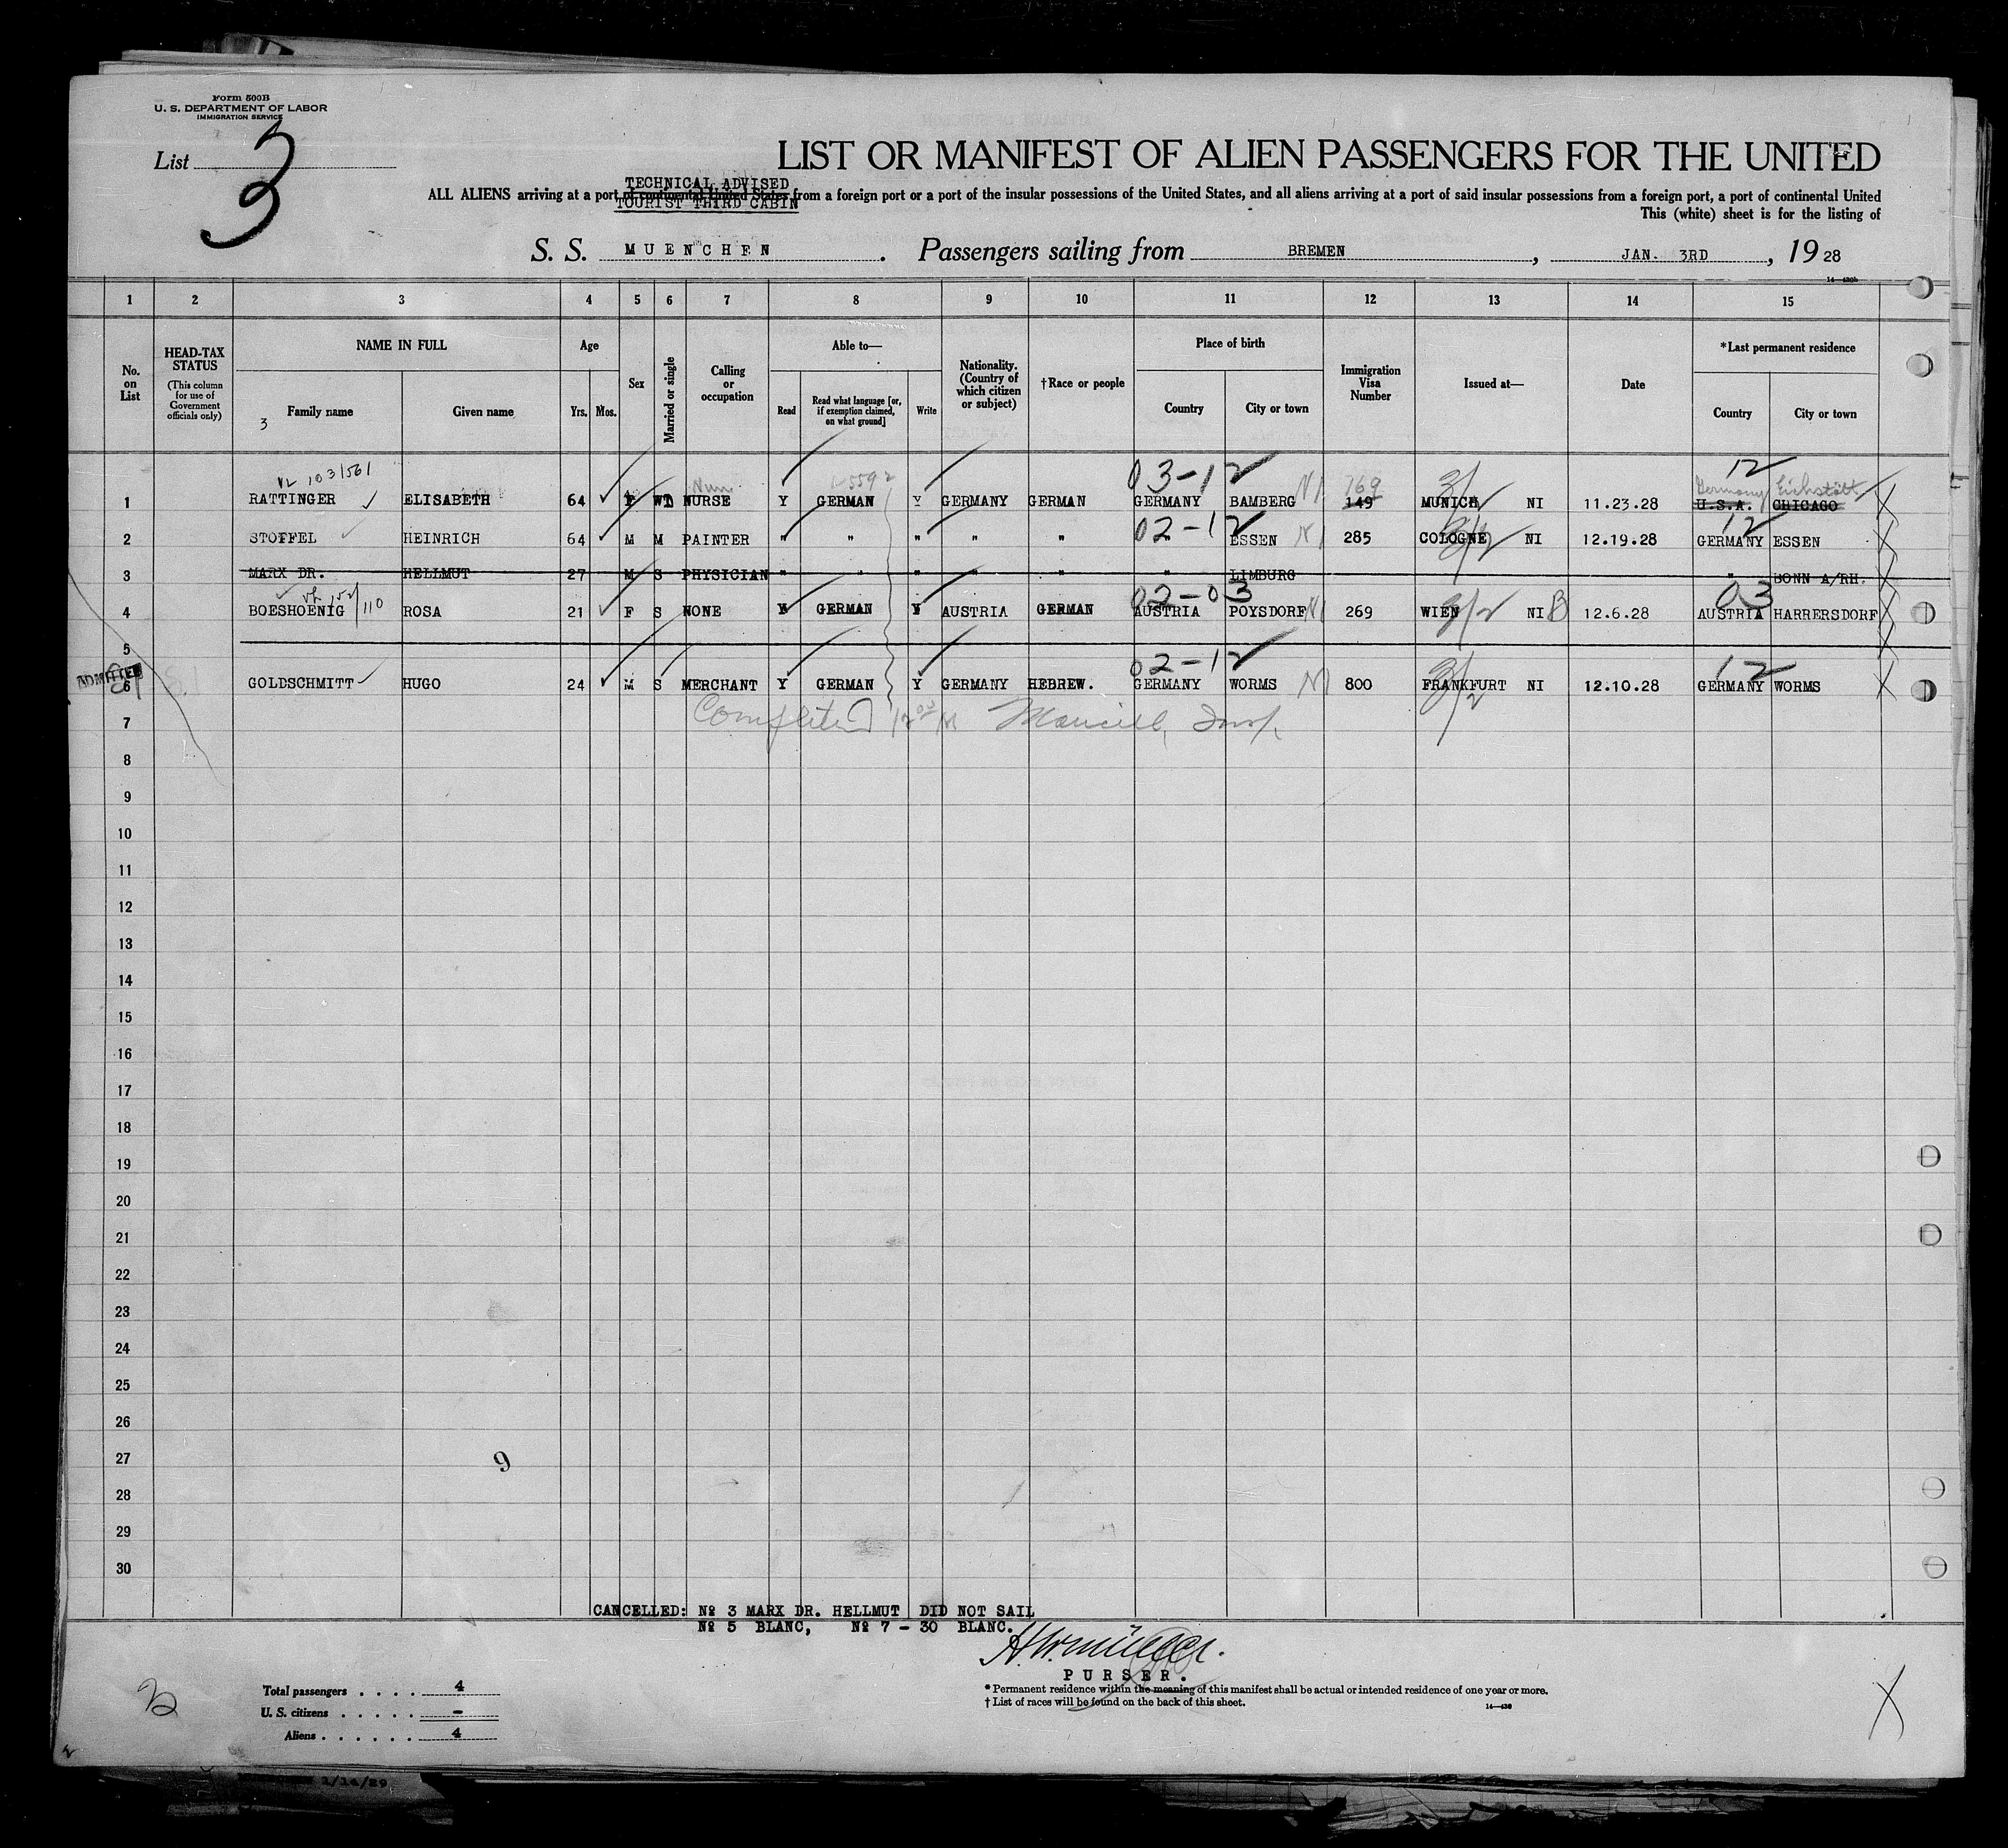 Form 500B
U. S. DEPARTMENT OF LABOR
IMMIGRATION SERVICE
List 3
LIST OR MANIFEST OF ALIEN PASSENGERS FOR THE UNITED
TECHNICAL ADVISED
ALL ALIENS arriving at a port of continental United States from a foreign port or a port of the insular possessions of the United States, and all aliens arriving at a port of said insular possessions from a foreign port, a port of continental United
TOURIST THIRD CABIN
This (white) sheet is for the listing of
S. S. MUENCHEN. Passengers sailing from BREMEN, JAN. 3RD, 1928
1 2 3 4 5 6 7 8 9 10 11 12 13 14 15
No. on List
HEAD-TAX STATUS (This column for use of Government officials only)
NAME IN FULL
Family name
Given name
3
Age
Yrs. Mos.
Sex
Married or single
Calling or occupation
Able to—
Read
Read what language [or, if exemption claimed, on what ground]
Write
Nationality. (Country of which citizen or subject)
†Race or people
Place of birth
Country
City or town
Immigration Visa Number
Issued at—
Date
*Last permanent residence
Country
City or town
VL 1031561
03-12 769 12 Germany Eichstätt
1 RATTINGER ELISABETH 64 F WD NURSE Y GERMAN Y GERMANY GERMAN GERMANY BAMBERG NI 149 MUNICH NI 11.23.28 U.S.A. CHICAGO
02-12 12
2 STOFFEL HEINRICH 64 M M PAINTER " " " " " " ESSEN NI 285 COLOGNE NI 12.19.28 GERMANY ESSEN
3 MARX DR. HELLMUT 27 M S PHYSICIAN " " " " " " LIMBURG " BONN A/RH.
02-03 03
4 BOESHOENIG 110 ROSA 21 F S NONE Y GERMAN Y AUSTRIA GERMAN AUSTRIA POYSDORF NI 269 WIEN NI B 12.6.28 AUSTRIA HARRERSDORF
5
02-12 12
ADMITTED
6 GOLDSCHMITT HUGO 24 M S MERCHANT Y GERMAN Y GERMANY HEBREW. GERMANY WORMS NI 800 FRANKFURT NI 12.10.28 GERMANY WORMS
Completed
7
8
9
10
11
12
13
14
15
16
17
18
19
20
21
22
23
24
25
26
27 9
28
29
30
CANCELLED: No 3 MARX DR. HELLMUT DID NOT SAIL
No 5 BLANC, No 7 - 30 BLANC.
PURSER.
Total passengers . . . . 4
U. S. citizens . . . . . –
Aliens . . . . . . 4
* Permanent residence within the meaning of this manifest shall be actual or intended residence of one year or more.
† List of races will be found on the back of this sheet.
1/14/29